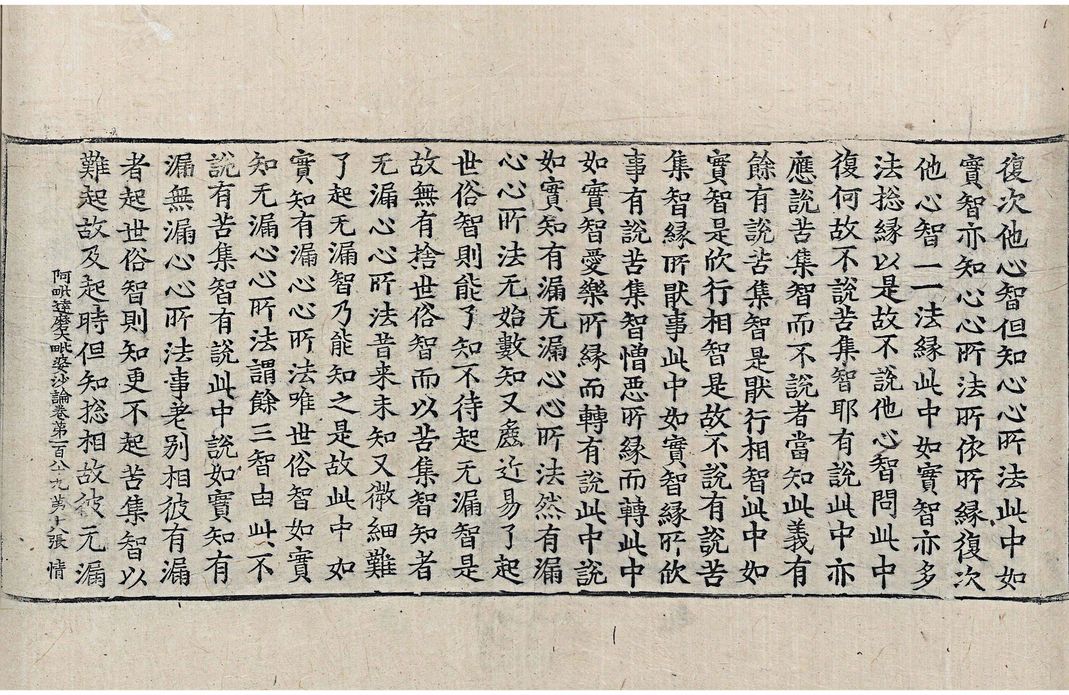 復次他心智但知心心所法此中如
實智亦知心心所法所依所緣復次
他心智一一法緣此中如實智亦多
法揔緣以是故不說他心智問此中
復何故不說苦集智耶有說此中亦
應說苦集智而不說者當知此義有
餘有說苦集智是猒行相智此中如
實智是欣行相智是故不說有說苦
集智緣所猒事此中如實智緣所欣
事有說苦集智憎惡所緣而轉此中
如實智愛樂所緣而轉有說此中說
如實知有漏无漏心心所法然有漏
心心所法无始數知又麁近易了起
世俗智則能了知不待起无漏智是
故無有捨世俗智而以苦集智知者
无漏心心所法昔来未知又微細難
了起无漏智乃能知之是故此中如
實知有漏心心所法唯世俗智如實
知无漏心心所法謂餘三智由此不
說有苦集智有說此中說如實知有
漏無漏心心所法事差別相彼有漏
者起世俗智則知更不起苦集智以
難起故及起時但知揔相故彼无漏
阿毗達磨大毗婆沙論卷第一百八九 第十張 情